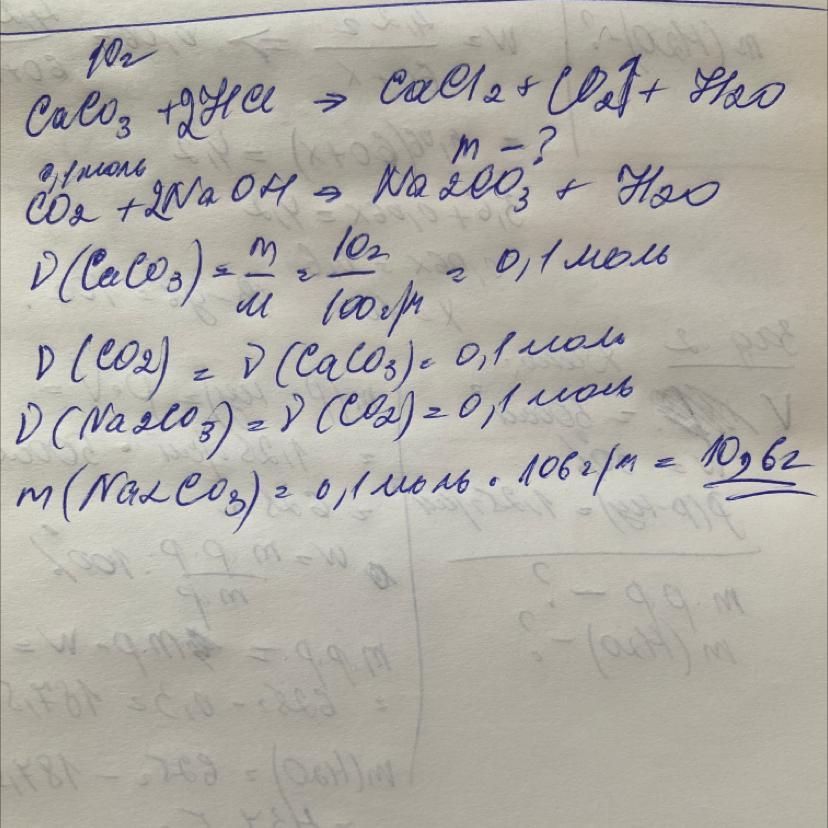 10г
CaCO3 + 2HCl → CaCl2 + CO2↑ + H2O
0,1 моль m - ?
CO2 + 2NaOH → Na2CO3 + H2O
ν(CaCO3) = m/M = 10г/100г/м = 0,1 моль
ν(CO2) = ν(CaCO3) = 0,1 моль
ν(Na2CO3) = ν(CO2) = 0,1 моль
m(Na2CO3) = 0,1 моль · 106г/м = 10,6г